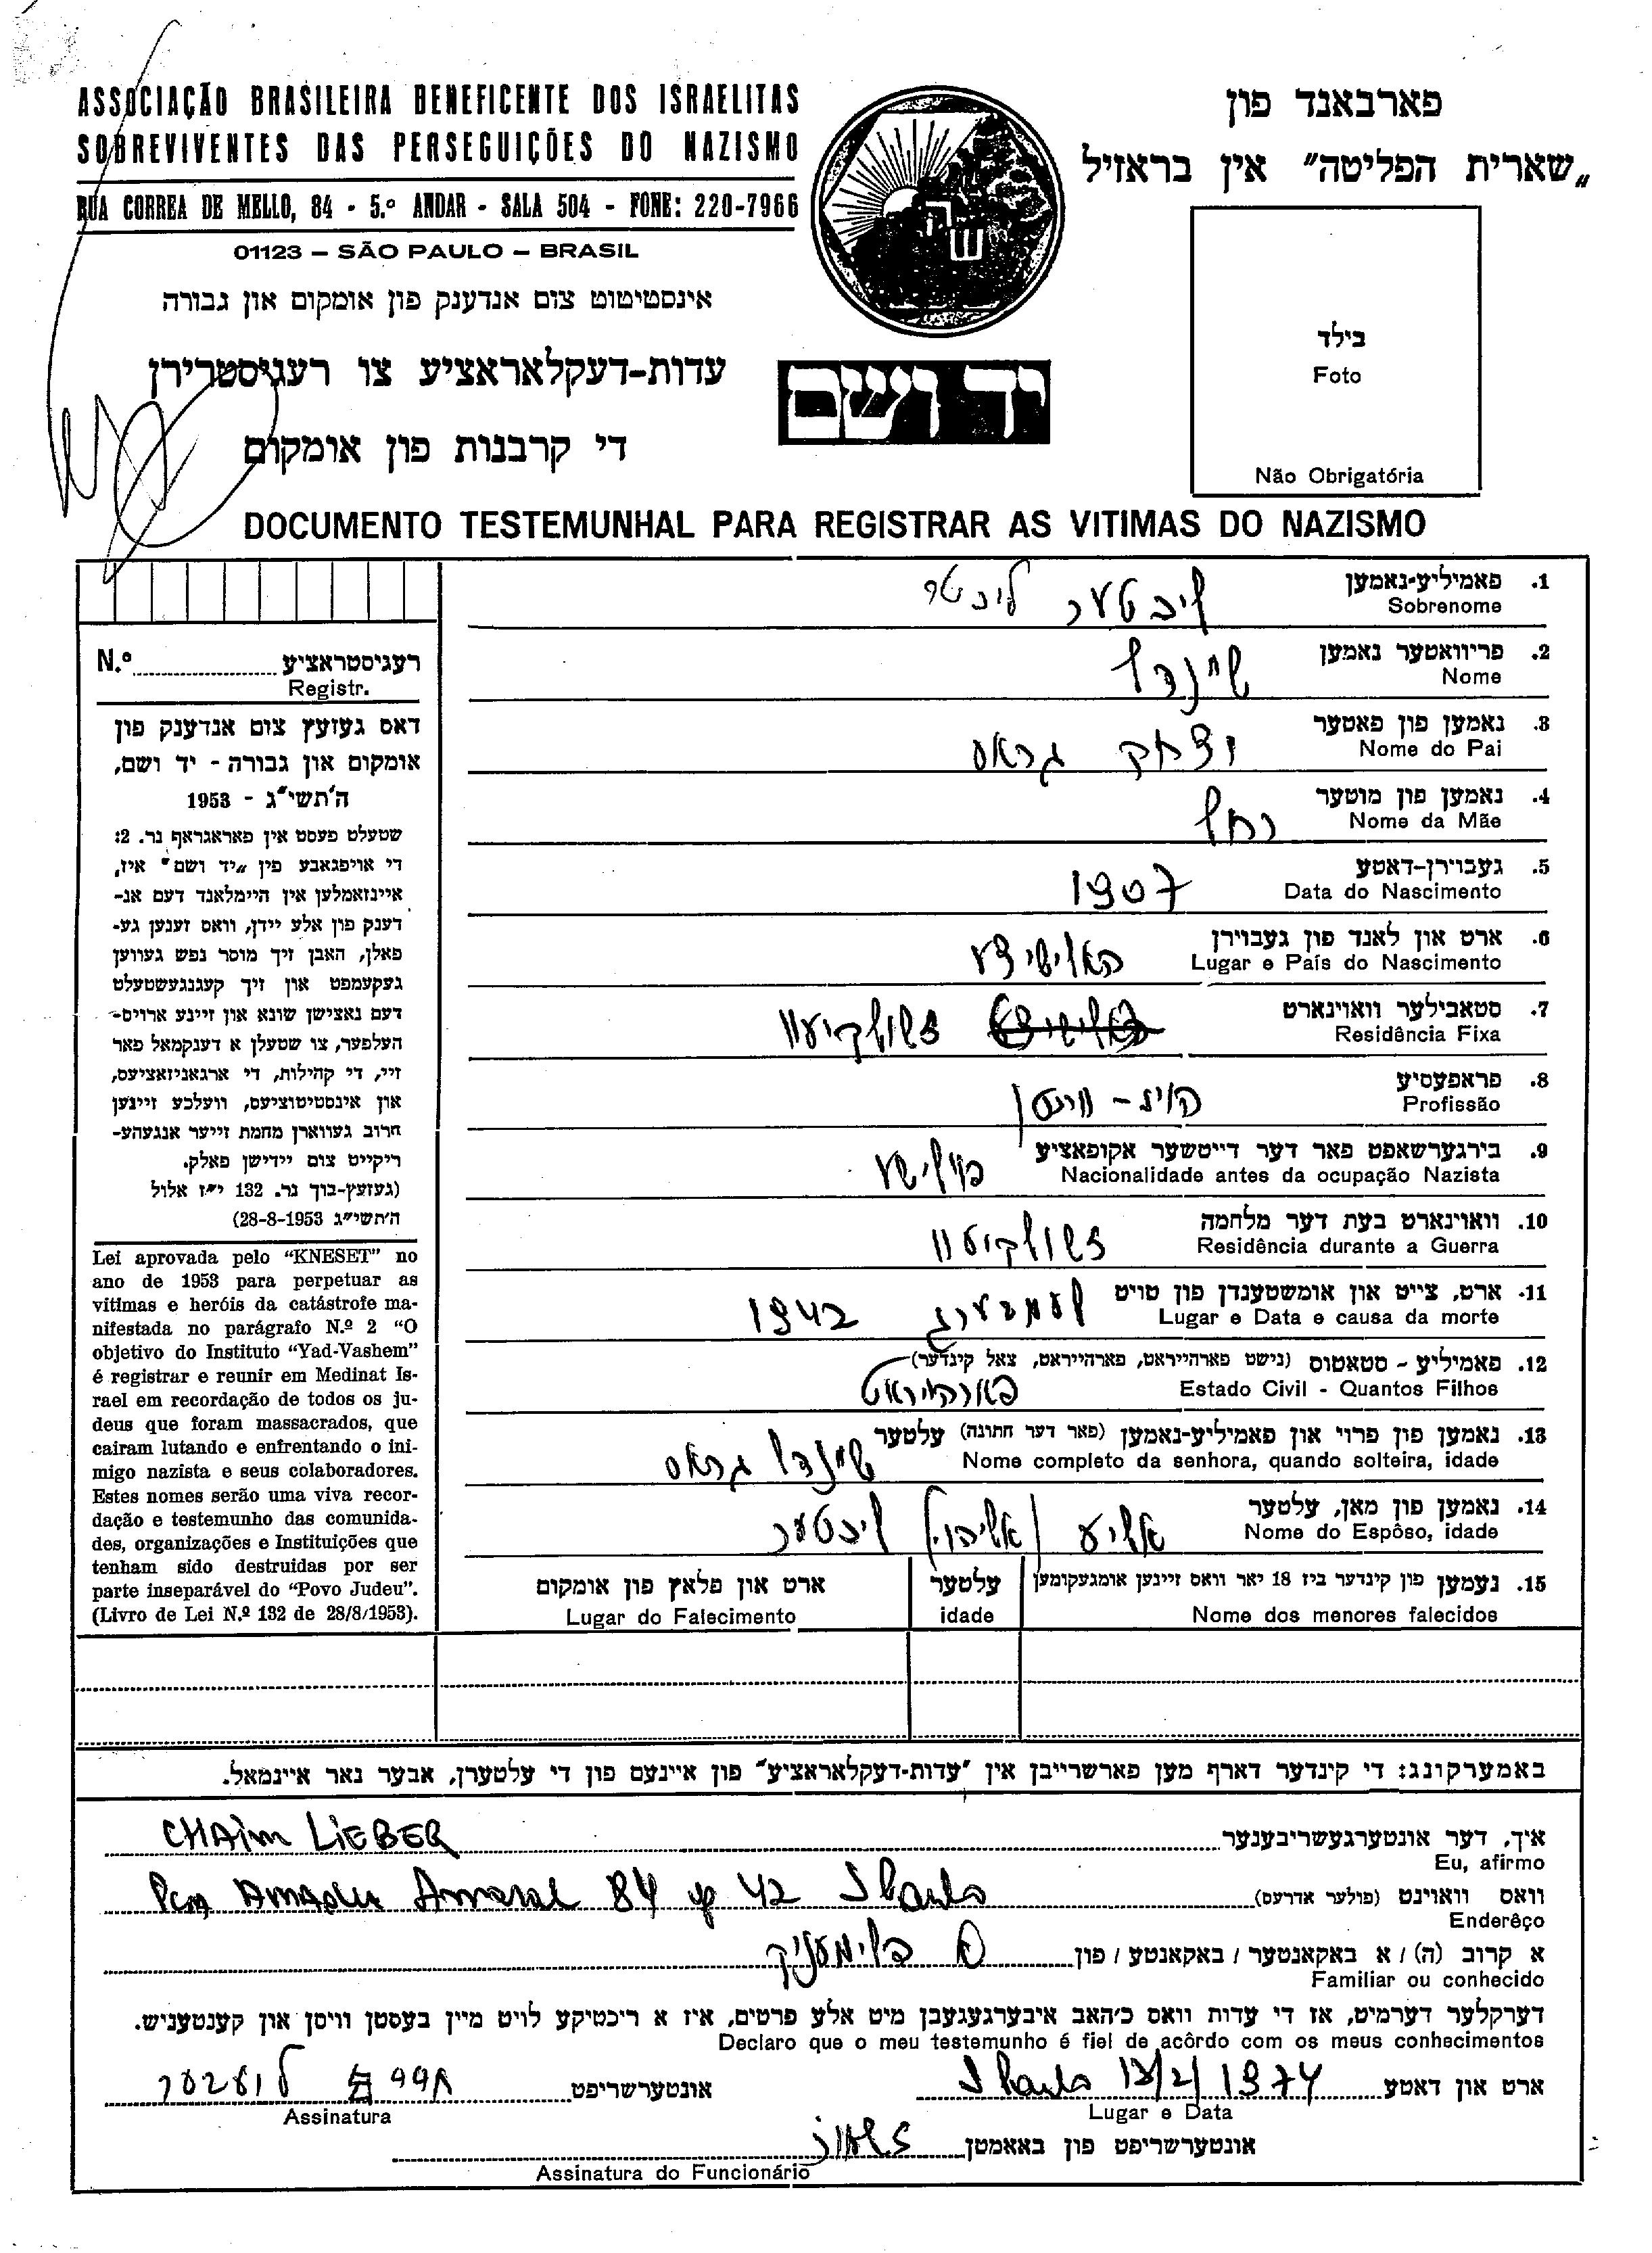 ASSOCIAÇÃO BRASILEIRA BENEFICENTE DOS ISRAELITAS
SOBREVIVENTES DAS PERSEGUIÇÕES DO NAZISMO
RUA CORREA DE MELLO, 84 - 5.º ANDAR - SALA 504 - FONE: 220-7966
01123 – SÃO PAULO – BRASIL
פארבאנד פון
„שארית הפליטה״ אין בראזיל
אינסטיטוט צום אנדענק פון אומקום און גבורה
עדות-דעקלאראציע צו רעגיסטרירן
די קרבנות פון אומקום
יד ושם
בילד
Foto
Não Obrigatória
DOCUMENTO TESTEMUNHAL PARA REGISTRAR AS VITIMAS DO NAZISMO
1. פאמיליע-נאמען ליכטער
Sobrenome
2. פריוואטער נאמען שיינדל
Nome
3. נאמען פון פאטער יצחק גראס
Nome do Pai
4. נאמען פון מוטער רחל
Nome da Mãe
5. געבוירן-דאטע 1907
Data do Nascimento
6. ארט און לאנד פון געבוירן
Lugar e País do Nascimento
7. סטאבילער וואוינארט זשולקיעוו
Residência Fixa
8. פראפעסיע
Profissão
9. בירגערשאפט פאר דער דייטשער אקופאציע פוילישע
Nacionalidade antes da ocupação Nazista
10. וואוינארט בעת דער מלחמה זשולקיעוו
Residência durante a Guerra
11. ארט, צייט און אומשטענדן פון טויט לעמבערג 1942
Lugar e Data e causa da morte
12. פאמיליע - סטאטוס (נישט פארהייראט, פארהייראט, צאל קינדער)
Estado Civil - Quantos Filhos פארהייראט
13. נאמען פון פרוי און פאמיליע-נאמען (פאר דער חתונה) עלטער שיינדל גראס
Nome completo da senhora, quando solteira, idade
14. נאמען פון מאן, עלטער ליכטער
Nome do Espôso, idade
15. נעמען פון קינדער ביז 18 יאר וואס זיינען אומגעקומען עלטער ארט און פלאץ פון אומקום
Nome dos menores falecidos idade Lugar do Falecimento
N.º רעגיסטראציע
Registr.
דאס געזעץ צום אנדענק פון
אומקום און גבורה - יד ושם,
ה'תשי"ג - 1953
שטעלט פעסט אין פאראגראף נר. 2:
די אויפגאבע פין „יד ושם" איז,
איינזאמלען אין היימלאנד דעם אנ-
דענק פון אלע יידן, וואס זענען גע-
פאלן, האבן זיך מוסר נפש געווען
געקעמפט און זיך קעגנגעשטעלט
דעם נאצישן שונא און זיינע ארויס-
העלפער, צו שטעלן א דענקמאל פאר
זיי, די קהילות, די ארגאניזאציעס,
און אינסטיטוציעס, וועלכע זיינען
חרוב געווארן מחמת זייער אנגעהע-
ריקייט צום יידישן פאלק.
(געזעץ-בוך נר. 132 י"ז אלול
ה'תשי"ג 28-8-1953)
Lei aprovada pelo “KNESET” no
ano de 1953 para perpetuar as
vitimas e heróis da catástrofe ma-
nifestada no parágrafo N.º 2 “O
objetivo do Instituto “Yad-Vashem”
é registrar e reunir em Medinat Is-
rael em recordação de todos os ju-
deus que foram massacrados, que
cairam lutando e enfrentando o ini-
migo nazista e seus colaboradores.
Estes nomes serão uma viva recor-
dação e testemunho das comunida-
des, organizações e Instituições que
tenham sido destruidas por ser
parte inseparável do “Povo Judeu”.
(Livro de Lei N.º 132 de 28/8/1953).
באמערקונג: די קינדער דארף מען פארשרייבן אין "עדות-דעקלאראציע" פון איינעם פון די עלטערן, אבער נאר איינמאל.
איך, דער אונטערגעשריבענער CHAIM LIEBER
Eu, afirmo
וואס וואוינט (פולער אדרעס) Pça Amadeu Amaral 84 ap 42 S Paulo
Enderêço
א קרוב (ה) / א באקאנטער / באקאנטע / פון א פלימעניק
Familiar ou conhecido
דערקלער דערמיט, אז די עדות וואס כ׳האב איבערגעגעבן מיט אלע פרטים, איז א ריכטיקע לויט מיין בעסטן וויסן און קענטעניש.
Declaro que o meu testemunho é fiel de acôrdo com os meus conhecimentos
ארט און דאטע S Paulo 13/2/1974 אונטערשריפט חיים ליעבער
Lugar e Data Assinatura
אונטערשריפט פון באאמטן
Assinatura do Funcionário